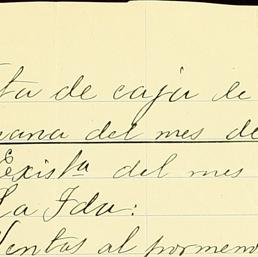 ta de caja de
mana del mes de
Exista del mes
La Fda:
Ventas al pormeno